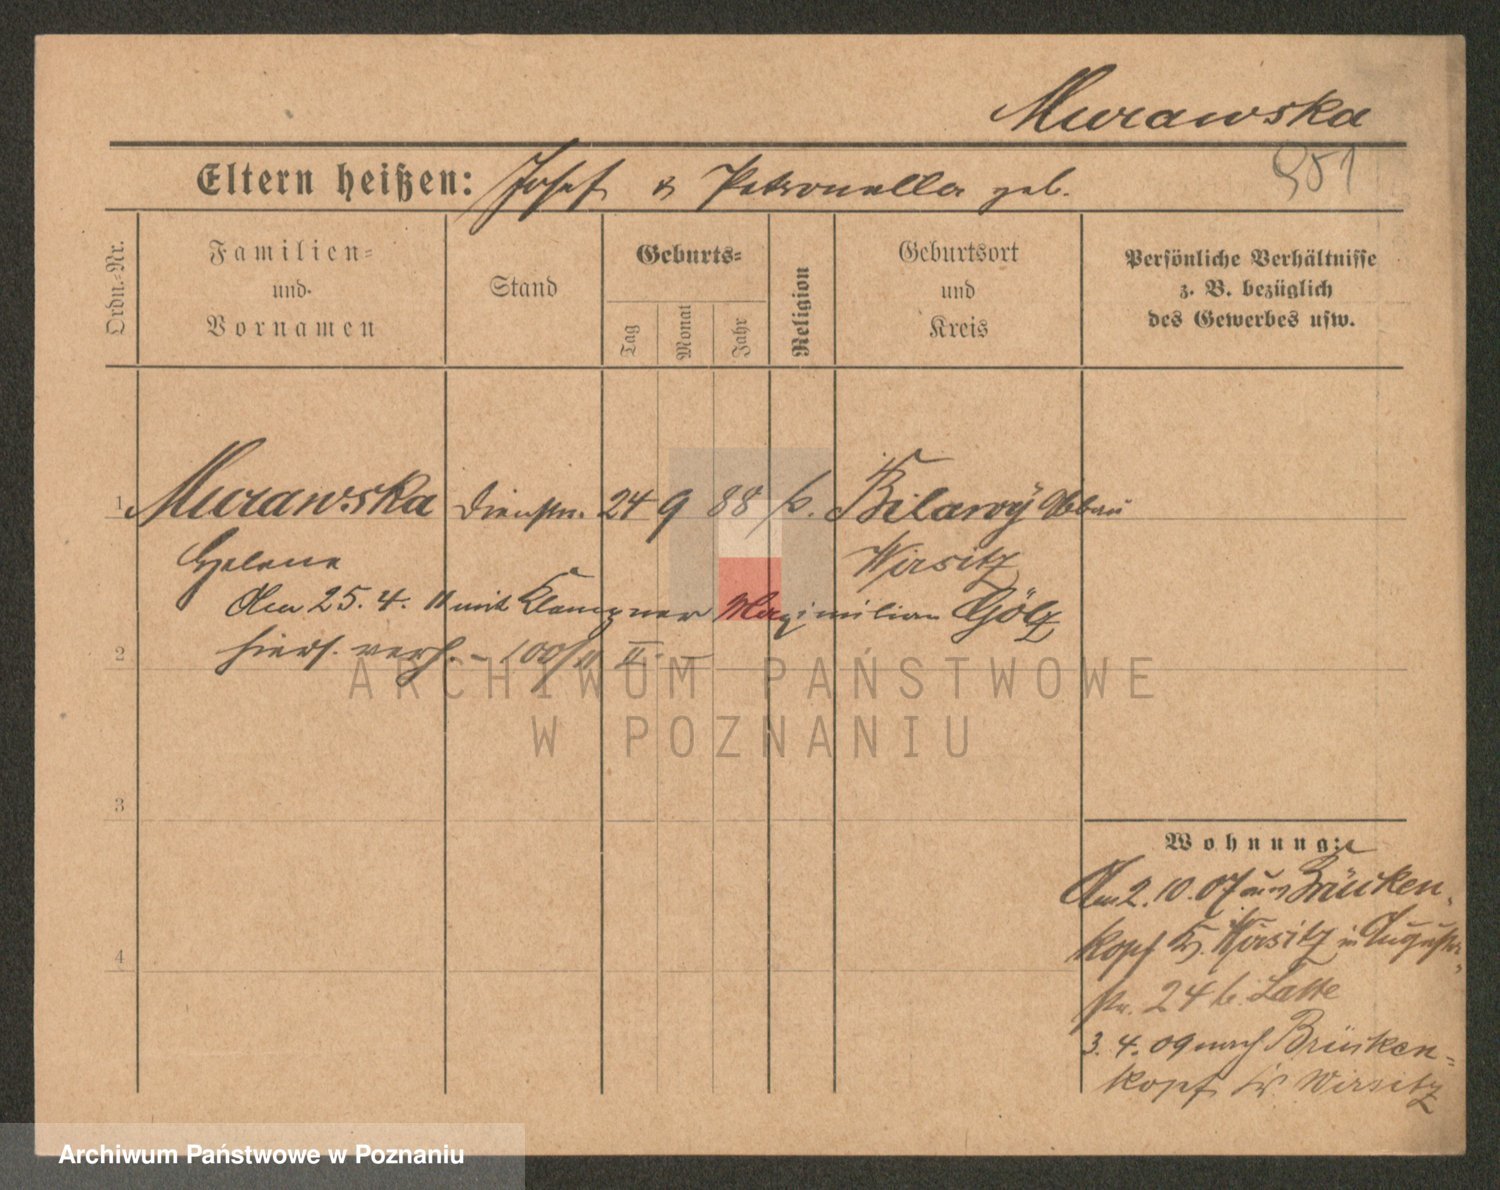 Murawska
951
Eltern heißen: Josef & Petronella geb.
Ordn.-Nr.
Familien-
und
Vornamen
Stand
Geburts-
Tag
Monat
Jahr
Religion
Geburtsort
und
Kreis
Persönliche Verhältnisse
z. B. bezüglich
des Gewerbes usw.
1 Murawska Dienstm. 24 9 88 k. Bilawÿ Abbau
Helene Wirsitz
Am 25. 4. 11 mit Klempner Maximilian Gölz
hiers. verh. - 100/11 II. -
2
3
4
Wohnung:
Am 2. 10. 07 aus Brücken-
kopf Kr. Wirsitz in Augusta-
str. 24 b. Latte
3. 4. 09 nach Brücken-
kopf Kr. Wirsitz
ARCHIWUM PAŃSTWOWE
W POZNANIU
Archiwum Państwowe w Poznaniu